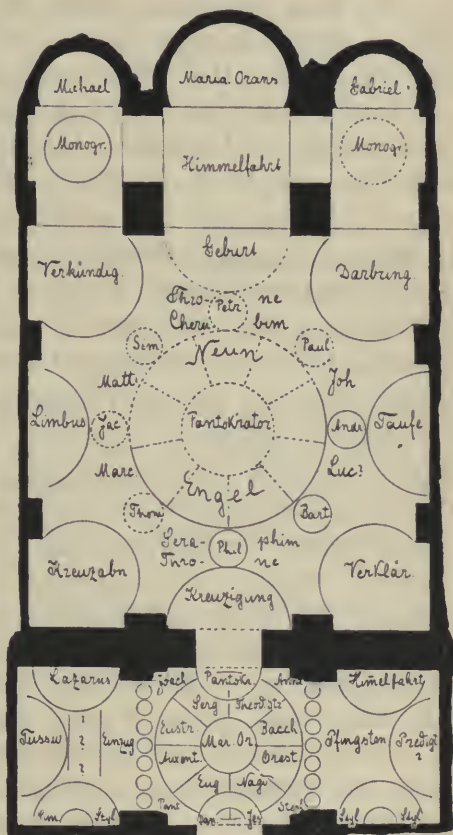 Michael Maria Orans Gabriel
Monogr. Himmelfahrt Monogr.
Geburt
Verkündig. Darbring.
Thro- Petr ne
Cheru bim
Sim Neun Paul
Matt Joh
Limbus Jac Pantokrator Andr Taufe
Marc Luc?
Engel
Thom Bart
Sera- Phil phim
Thro- ne
Kreuzabn Verklär.
Kreuzigung
Lazarus Joach Pantokr. Anna Himelfahrt
Serg Theodotr
Fussw ? ? ? Einzug Eustr. Mar. Or. Bacch Pfingsten Predigt ?
Auxent. Orest
Eug Nagi
Pant Dan Jes Steph
Sim Styl Styl Styl